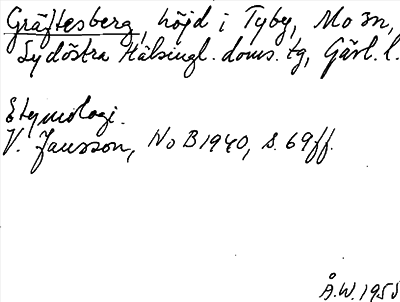 Gräftesberg, höjd i Tyby, Mo sn,
Sydöstra Hälsingl. doms. tg, Gävl. l.
Etymologi.
V. Jansson, NoB 1940, s. 69ff.
Å.W. 1958